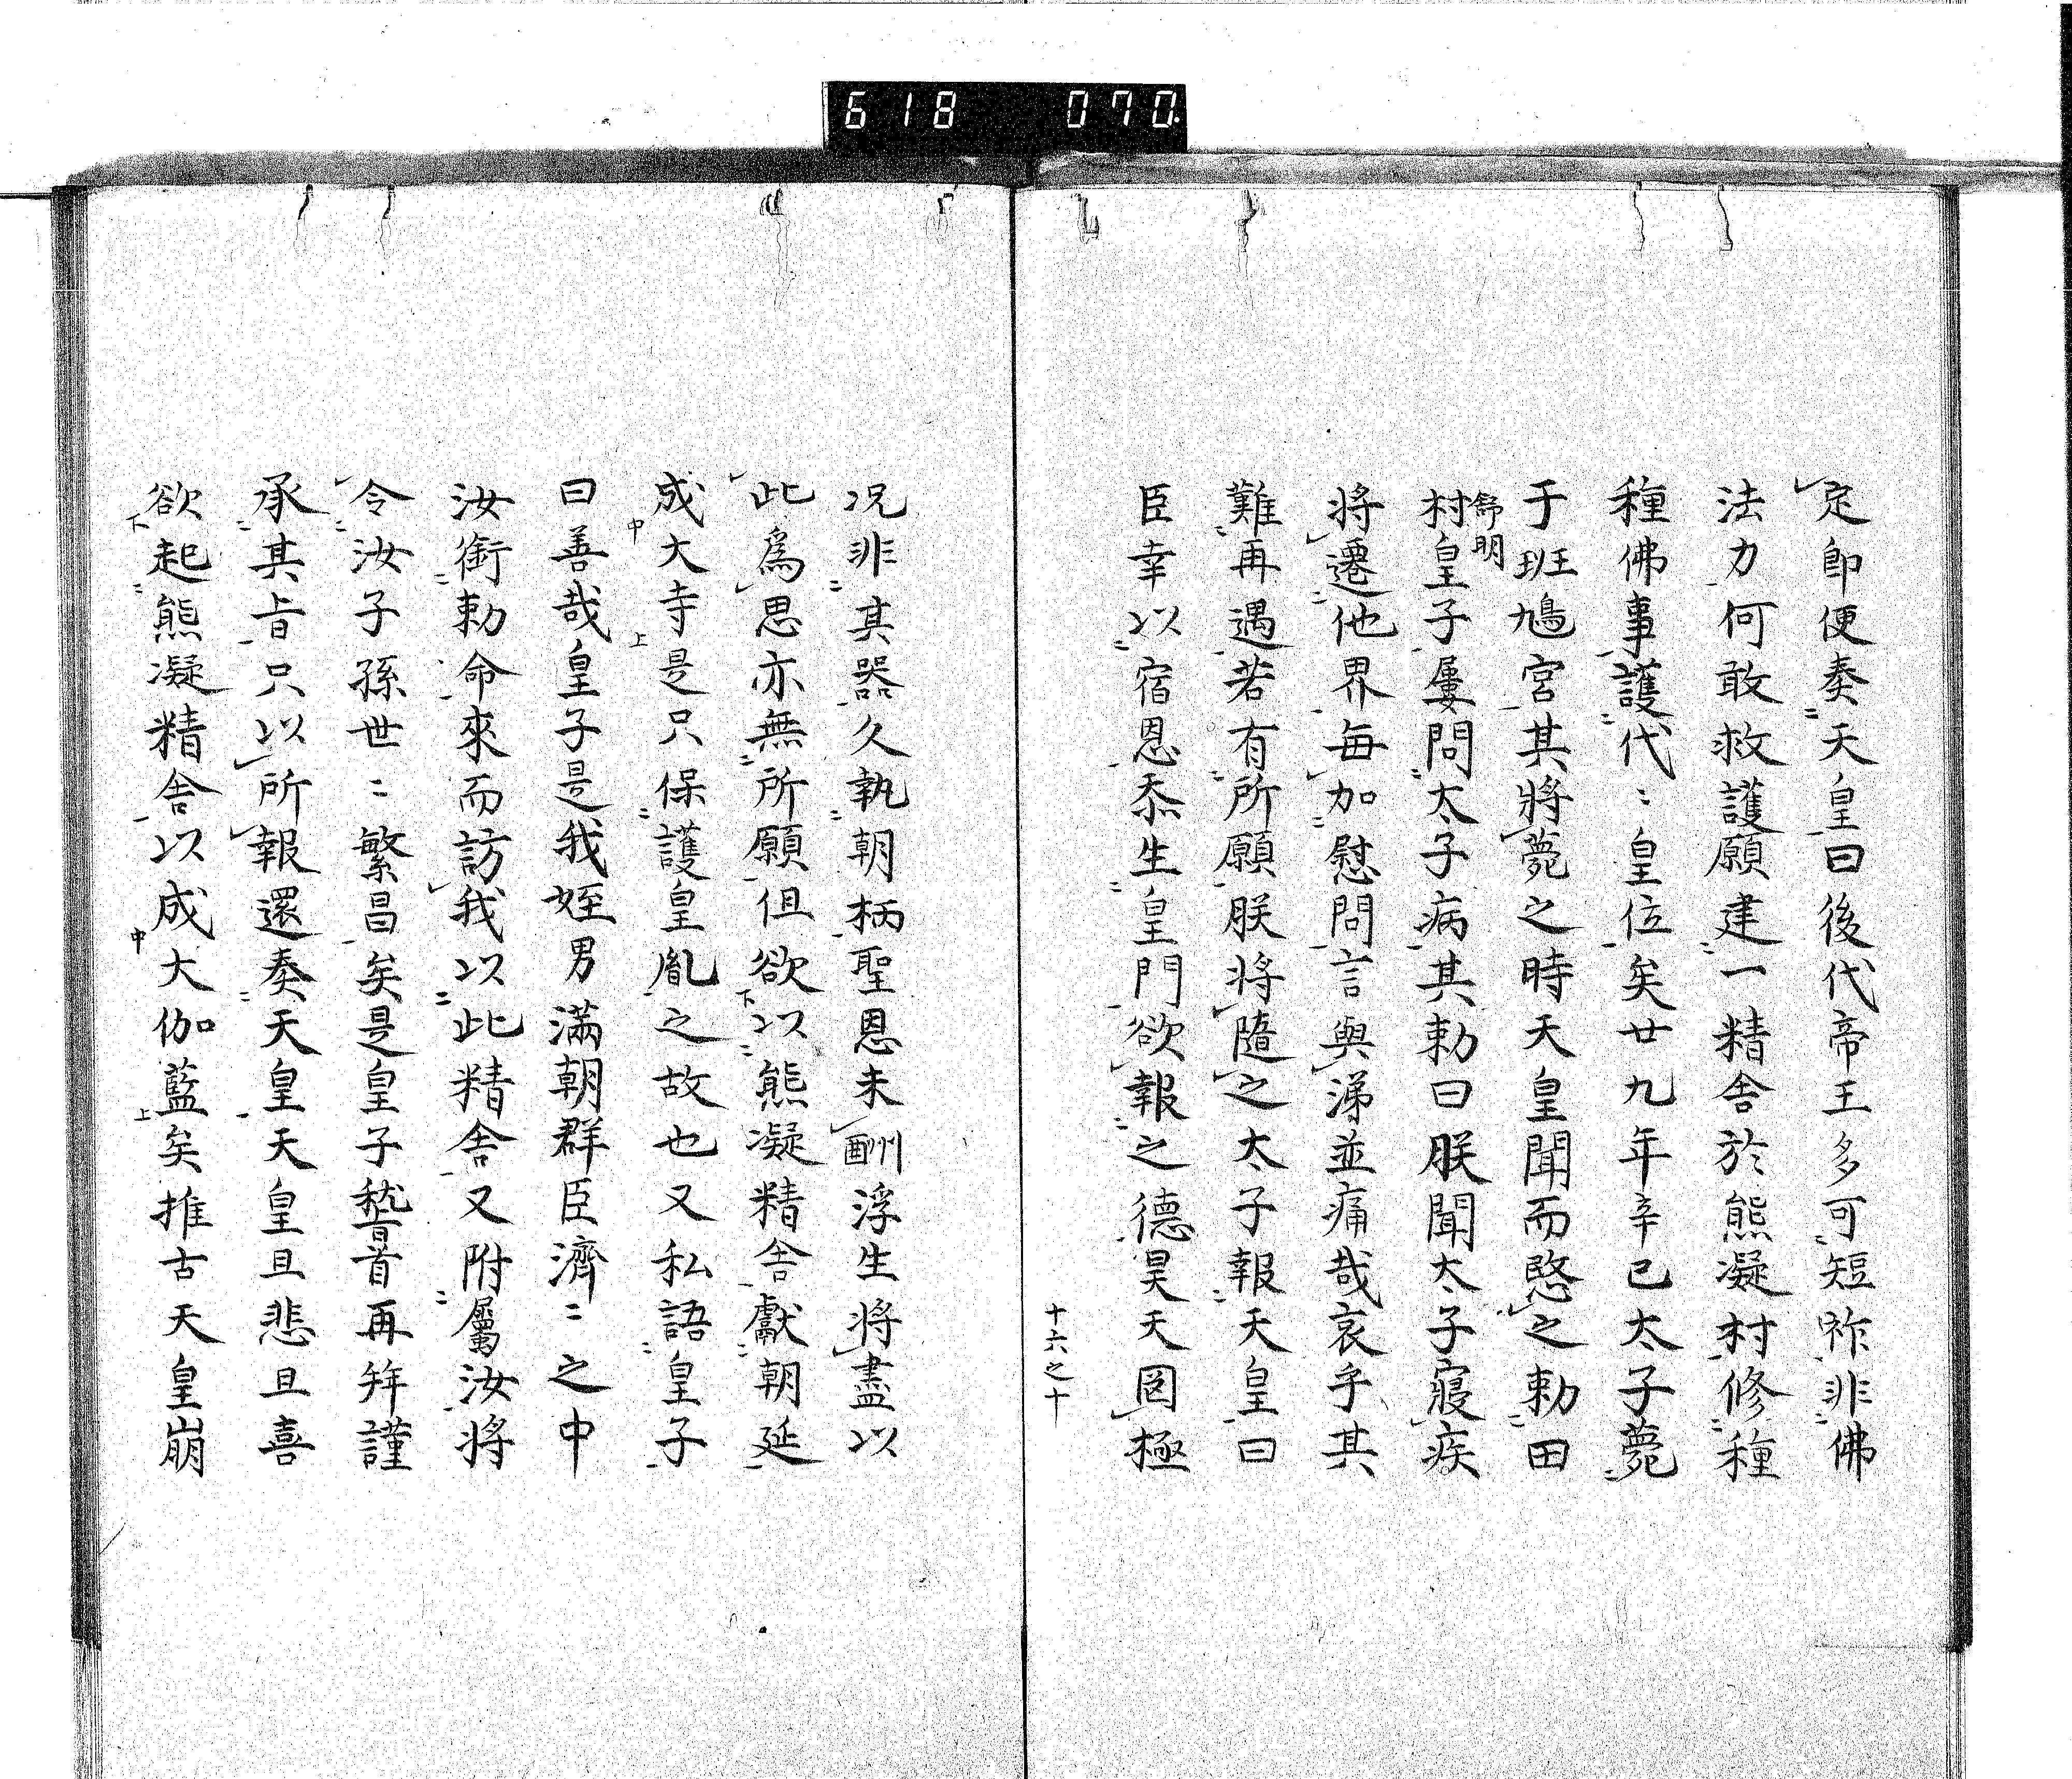 618 070
定即便奏天皇曰後代帝王多可短祚非佛
法力何敢救護願建一精舎於熊凝村修種
種佛事護代〻皇位矣廿九年辛巳太子薨
于班鳩宮其將薨之時天皇聞而愍之勅田
舒明
村皇子屢問太子病其勅曰朕聞太子寢疾
將遷他界毎加慰問言與涕並痛哉哀乎其
難再遇若有所願朕将隨之太子報天皇曰
臣幸以宿恩忝生皇門欲報之德昊天罔極
十六之十
况非其器久執朝柄聖恩未酬浮生将盡以
此爲思亦無所願但欲以熊凝精舎獻朝延
下 二 一 二 一
成大寺是只保護皇胤之故也又私語皇子
中 上 二 一 二 一
曰善哉皇子是我姪男滿朝群臣濟〻之中
汝銜勅命來而訪我以此精舎又附屬汝将
令汝子孫世〻繁昌矣是皇子稽首再拜謹
承其旨只以所報還奏天皇天皇且悲且喜
欲起熊凝精舎以成大伽藍矣推古天皇崩
下 二 一 中 上